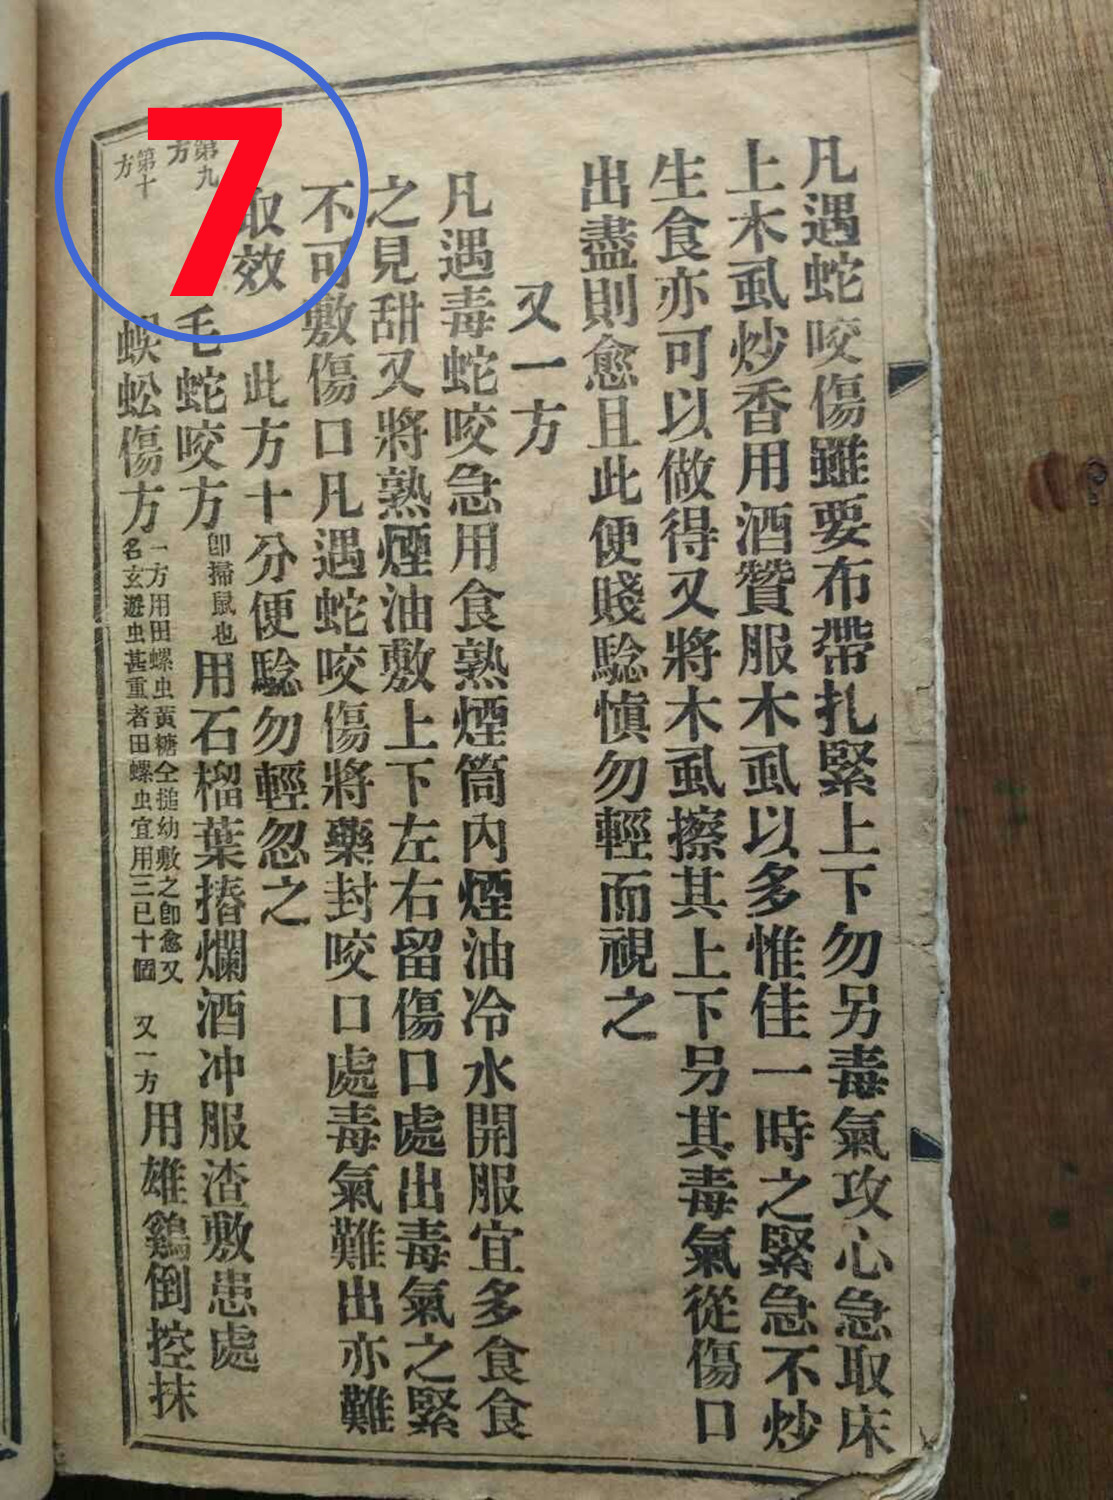 凡遇蛇咬傷雖要布帶扎緊上下勿另毒氣攻心急取床
上木虱炒香用酒贊服木虱以多惟佳一時之緊急不炒
生食亦可以做得又將木虱擦其上下另其毒氣從傷口
出盡則愈且此便賤騐愼勿輕而視之
又一方
凡遇毒蛇咬急用食熟煙筒內煙油冷水開服宜多食食
之見甜又將熟煙油敷上下左右留傷口處出毒氣之緊
不可敷傷口凡遇蛇咬傷將藥封咬口處毒氣難出亦難
取效 此方十分便騐勿輕忽之
第九方
毛蛇咬方 卽掃鼠也 用石榴葉摏爛酒冲服渣敷患處
第十方
蜈蚣傷方 一方用田螺虫黃糖仝搥幼敷之卽愈又名玄遊虫甚重者田螺虫宜用三巳十個 又一方 用雄鷄倒控抹
7